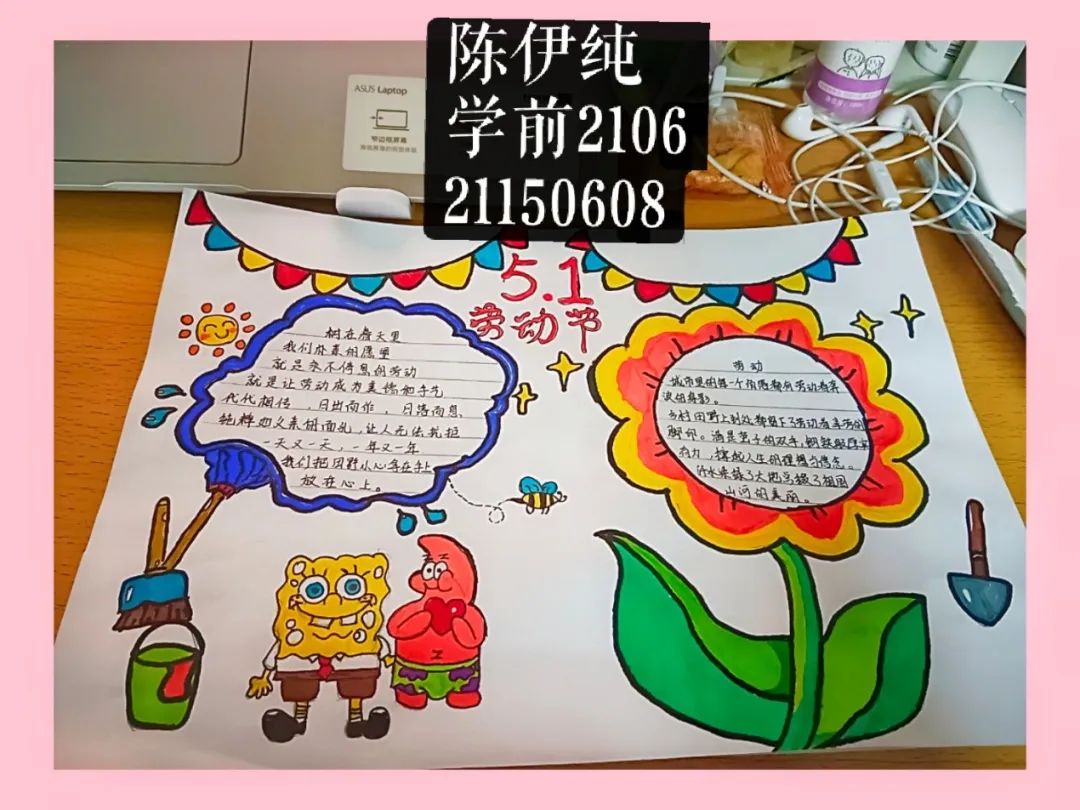 陈伊纯
学前2106
21150608
ASUS Laptop
窄边框屏幕
5.1
劳动节
树在詹天里
我们朴素的愿望
就是永不停息的劳动
就是让劳动成为美德和手艺
代代相传，日出而作，日落而息、
纯粹动义亲切面孔，让人无法抗拒
一天又一天，一年又一年
我们把田野小心等在手上
放在心上。
劳动
城市里的每一个角落都有劳动者奔
波的身影。
乡村田野上到处都留下了劳动者辛劳的
脚印。满是茧子的双手，钢铁般厚实
有力，撑起人生的理想与信念。
汗水来练了大地点缀了祖国
山河的美丽。